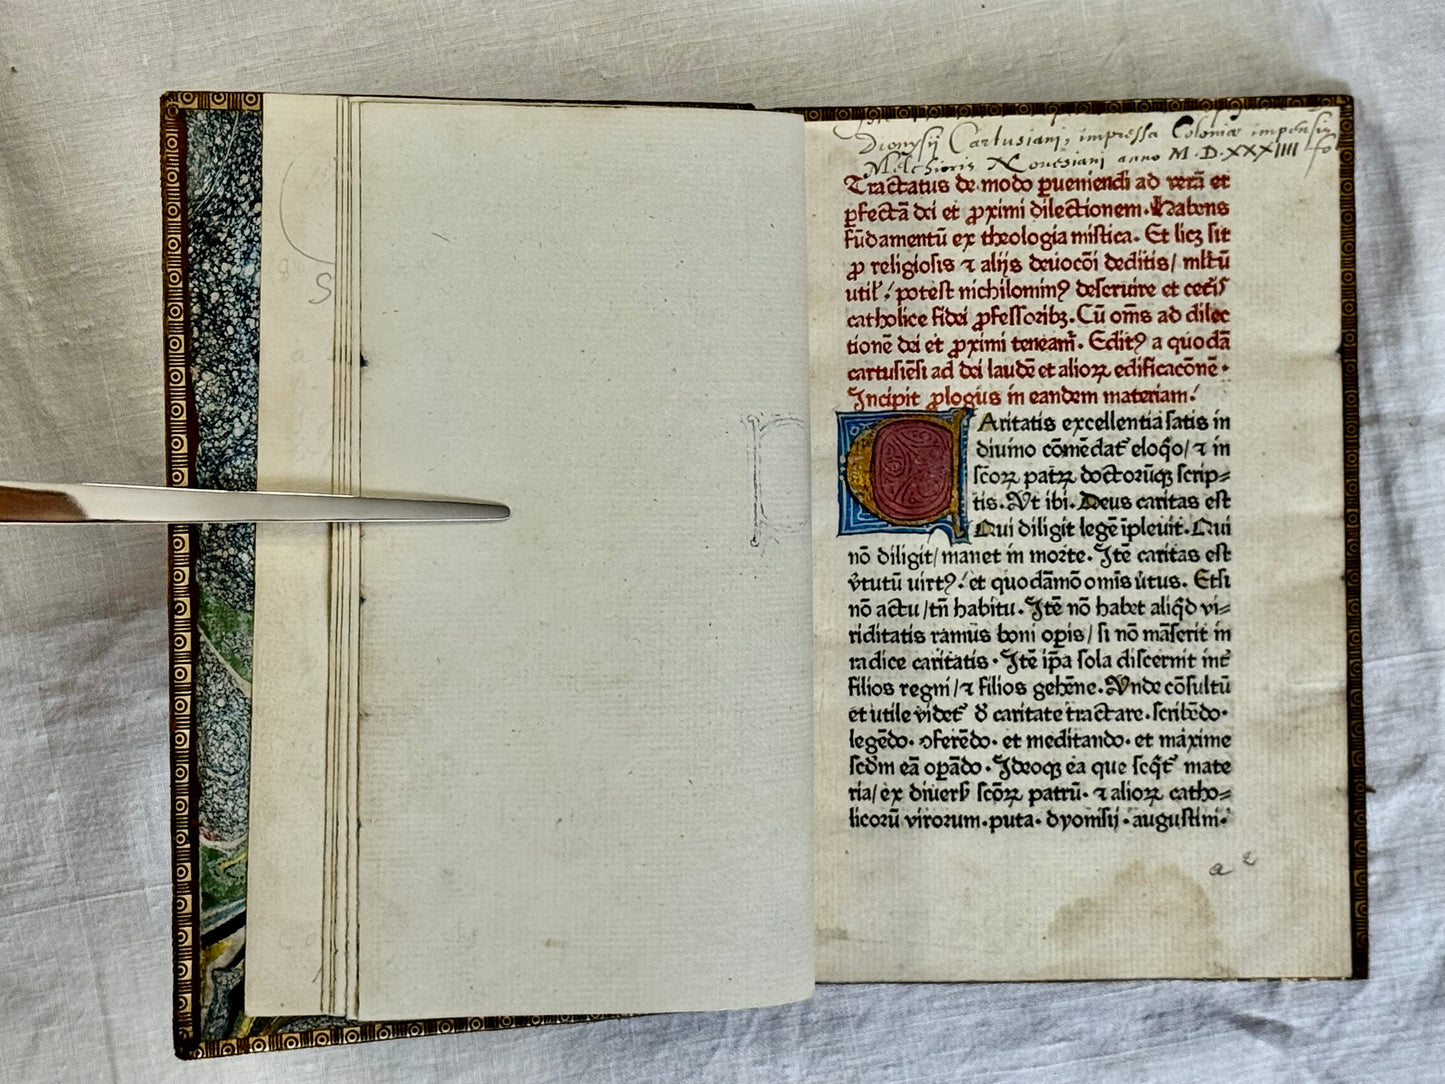 Dionysij Cartusiani, impressa Coloniæ impensis
Melchioris Novesiani anno M·D·XXXIIII fo
Tractatus de modo ꝑueniendi ad verā et
ꝑfectā dei et ꝓximi dilectionem. Habens
fūdamentū ex theologia mistica. Et licꝫ sit
ꝓ religiosis ⁊ alijs deuocōi deditis/ ml̄tū
util᷒: potest nichilominꝰ deseruire et cet̄is
catholice fidei ꝓfessoribꝫ. Cū om̄s ad dilec
tionē dei et ꝓximi teneam᷒. Editꝰ a quodā
cartusiēsi ad dei laudē et alioꝝ edificacōnē.
Incipit ꝓlogus in eandem materiam:
Caritatis excellentia satis in
diuino cōmēdat᷒ eloq̄o/ ⁊ in
sc̄oꝝ patꝝ doctorūqꝫ scrip=
tis. Ut ibi. Deus caritas est
Qui diligit legē īpleuit. Qui
nō diligit/ manet in morte. Itē caritas est
v̄tutū uirtꝰ: et quodāmō omīs u̇tus. Etsi
nō actu/ tn̄ habitu. Itē nō habet aliq̄d vi=
riditatis ramus boni oꝑis/ si nō māserit in
radice caritatis. Itē ip̄a sola discernit int̄
filios regni/ ⁊ filios gehēne. Unde cōsultū
et utile videt᷒ d̄ caritate tractare. scribēdo.
legēdo. ꝯferēdo. et meditando. et maxime
scd̄m eā oꝑādo. Ideoqꝫ ea que seq̄t᷒ mate
ria/ ex diuers᷒ sc̄oꝝ patrū. ⁊ alioꝝ catho=
licorū virorum. puta. dyonisij. augustini.
a 2